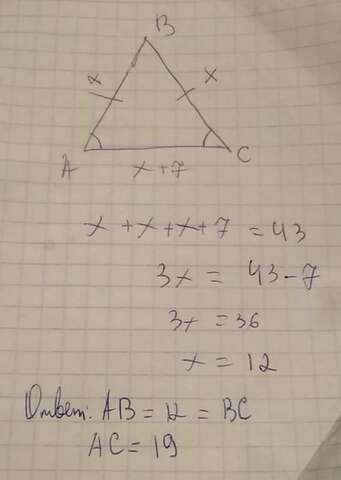 B
x x
A C
x+7
x+x+x+7 = 43
3x = 43-7
3x = 36
x = 12
Ответ: AB = 12 = BC
AC = 19